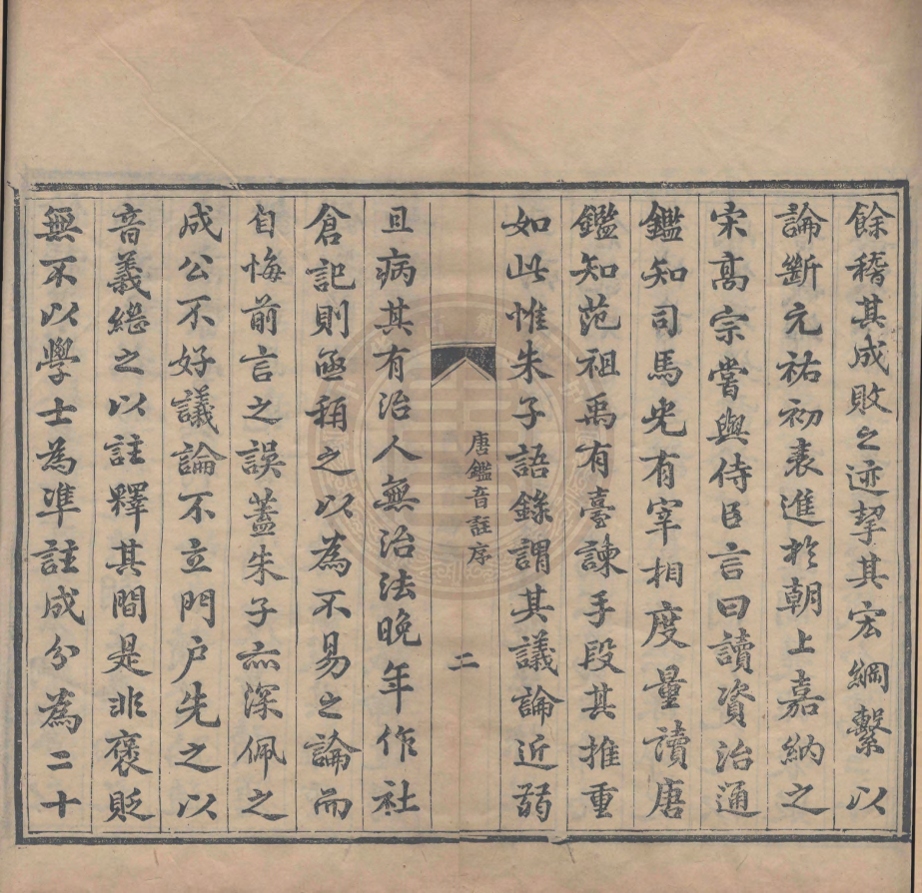 餘稽其成敗之迹挈其宏綱繫以
論斷元祐初表進於朝上嘉納之
宋髙宗嘗與侍臣言曰讀資治通
鑑知司馬光有宰相度量讀唐
鑑知范祖禹有臺諫手段其推重
如此惟朱子語錄謂其議論近弱
唐鑑音註序
二
且病其有治人無治法晚年作社
倉記則亟稱之以為不易之論而
自悔前言之誤蓋朱子亦深佩之
成公不好議論不立門户先之以
音義繼之以註釋其間是非褒貶
無不以學士為準註成分為二十